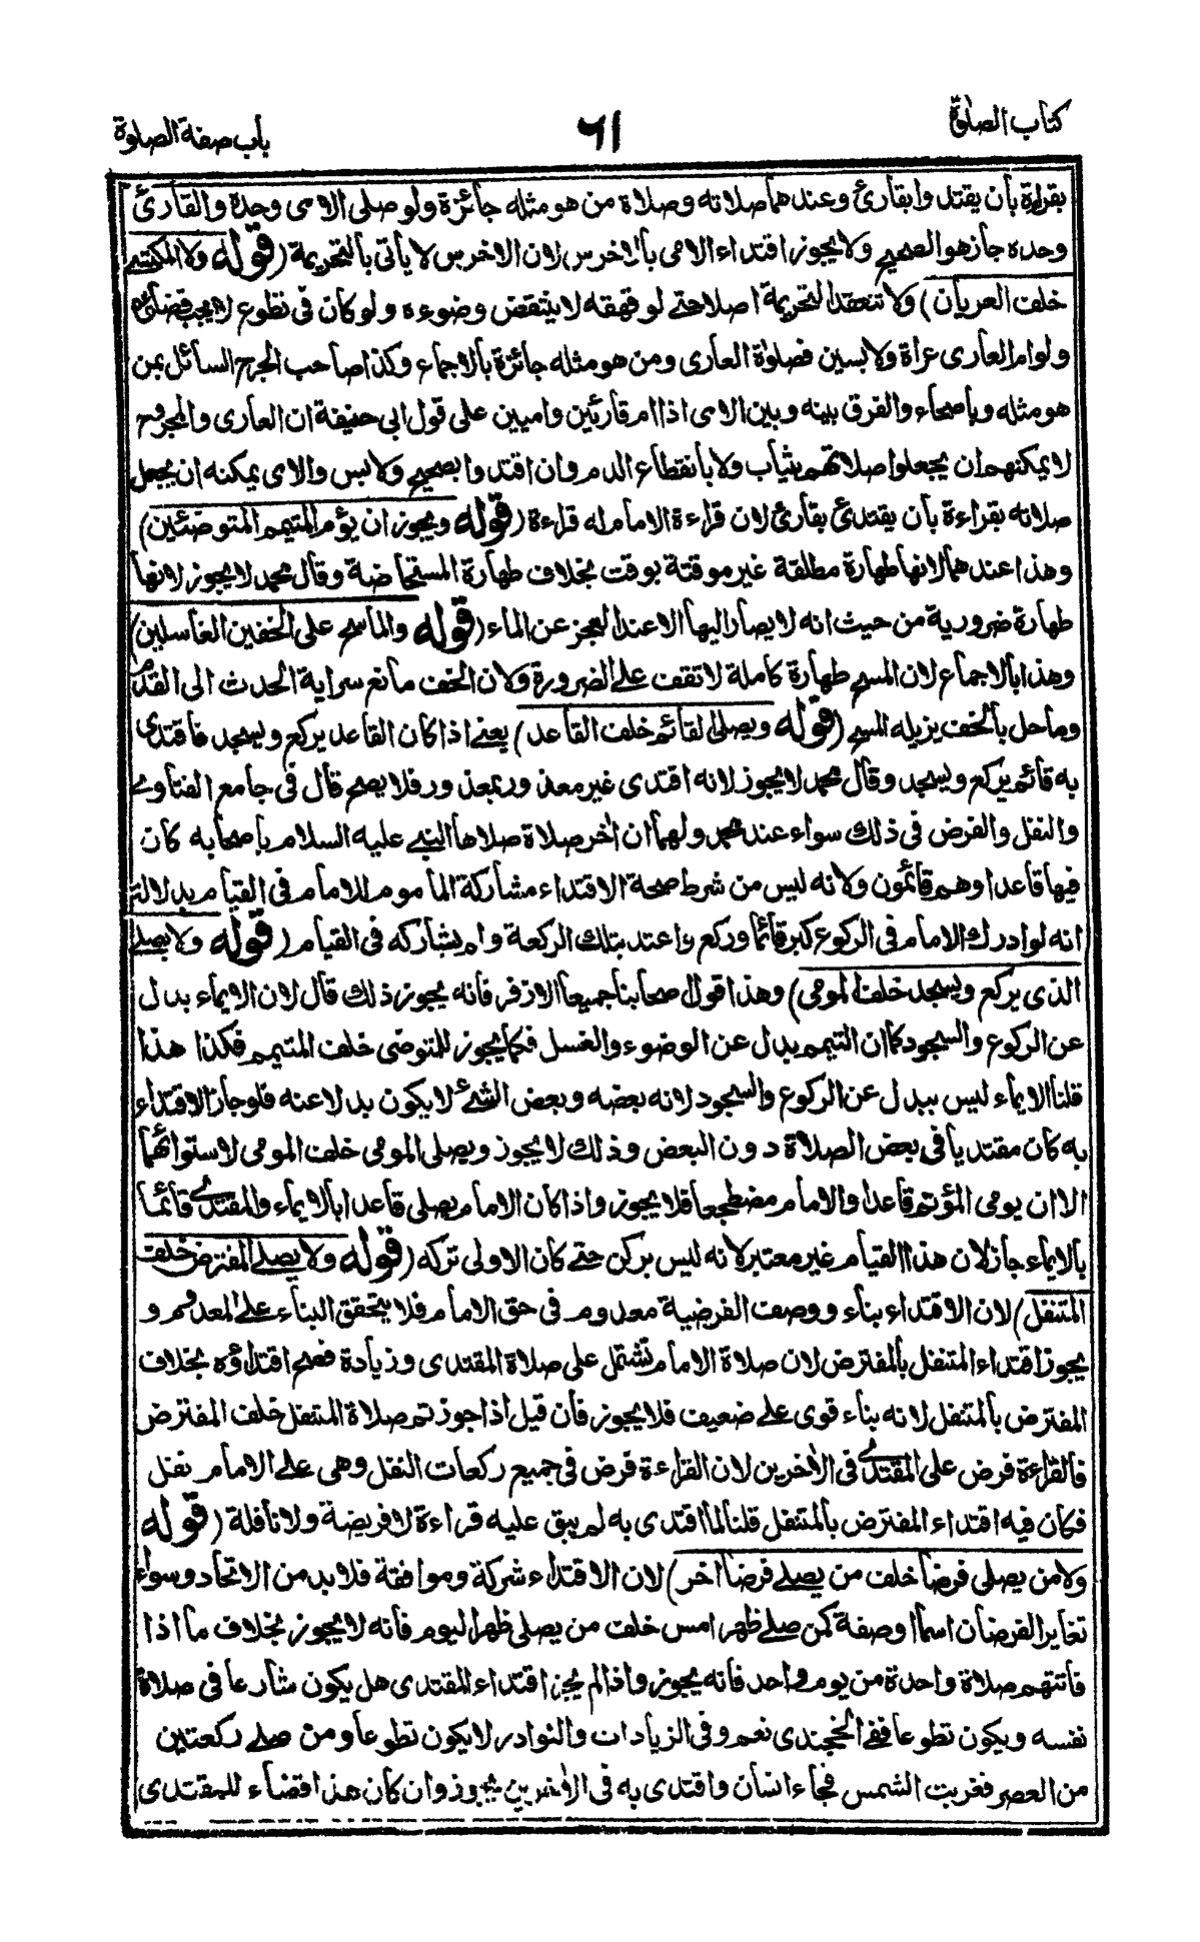 كتاب الصلوٰة
٦١
باب صفة الصلوة
بقراءة بأن يقتدوا بقارئ وعندهما صلاته وصلاة من هو مثله جائزة ولو صلى الامى وحده والقارئ
وحده جاز هو الصحيح ولا يجوز اقتداء الامى بالاخرس لان الاخرس لا يأتى بالتحريمة (قوله ولا المكتسى
خلف العريان) ولا تنعقد التحريمة اصلا حتى لو قهقه لا ينتقض وضوءه ولو كان فى تطوع لا يجب قضاؤه
ولو ام العارى عراة ولابسين فصلوٰة العارى ومن هو مثله جائزة بالاجماع وكذا صاحب الجرح السائل بمن
هو مثله وباصحاء والفرق بينه وبين الامى اذا ام قارئين واميين على قول ابى حنيفة ان العارى والمجروح
لا يمكنهم ان يجعلوا صلاتهم بثياب ولا بانقطاع الدم وان اقتدوا بصحيح ولابس والامى يمكنه ان يجعل
صلاته بقراءة بأن يقتدى بقارئ لان قراءة الامام له قراءة (قوله ويجوز ان يؤم المتيمم المتوضئين)
وهذا عندهما لانها طهارة مطلقة غير موقتة بوقت بخلاف طهارة المستحاضة وقال محمد لا يجوز لانها
طهارة ضرورية من حيث انه لا يصار اليها الا عند العجز عن الماء (قوله والماسح على الخفين الغاسلين)
وهذا بالاجماع لان المسح طهارة كاملة لا تقف على الضرورة ولان الخف مانع سراية الحدث الى القدم
وما حل بالخف يزيله المسح (قوله ويصلى القائم خلف القاعد) يعنى اذا كان القاعد يركع ويسجد فاقتدى
به قائم يركع ويسجد وقال محمد لا يجوز لانه اقتدى غير معذور بمعذور فلا يصح قال فى جامع الفتاوى
والنفل والفرض فى ذلك سواء عند محمد ولهما ان اٰخر صلاة صلاها النبى عليه السلام باصحابه كان
فيها قاعدا وهم قائمون ولانه ليس من شرط صحة الاقتداء مشاركة المأموم للامام فى القيام بدلالة
انه لو ادرك الامام فى الركوع كبر قائما وركع واعتد بتلك الركعة ولم يشاركه فى القيام (قوله ولا يصلى
الذى يركع ويسجد خلف المومى) وهذا قول اصحابنا جميعا الا زفر فانه يجوز ذلك قال لان الايماء بدل
عن الركوع والسجود كما ان التيمم بدل عن الوضوء والغسل فكما يجوز للمتوضى خلف المتيمم فكذا هذا
قلنا الايماء ليس ببدل عن الركوع والسجود لانه بعضه وبعض الشئ لا يكون بدلا عنه فلو جاز الاقتداء
به كان مقتديا فى بعض الصلاة دون البعض وذلك لا يجوز ويصلى المومى خلف المومى لاستوائهما
الا ان يومى المؤتم قاعدا والامام مضطجعا فلا يجوز واذا كان الامام يصلى قاعدا بالايماء والمقتدى قائما
بالايماء جاز لان هذا القيام غير معتبر لانه ليس بركن حتى كان الاولى تركه (قوله ولا يصلى المفترض خلف
المتنفل) لان الاقتداء بناء ووصف الفرضية معدوم فى حق الامام فلا يتحقق البناء على المعدوم و
يجوز اقتداء المتنفل بالمفترض لان صلاة الامام تشتمل على صلاة المقتدى وزيادة فصح اقتداؤه بخلاف
المفترض بالمتنفل لانه بناء قوى على ضعيف فلا يجوز فان قيل اذا جوزتم صلاة المتنفل خلف المفترض
فالقراءة فرض على المقتدى فى الاٰخرين لان القراءة فرض فى جميع ركعات النفل وهى على الامام نفل
فكان فيه اقتداء المفترض بالمتنفل قلنا لما اقتدى به لم يبق عليه قراءة لا فريضة ولا نافلة (قوله
ولا من يصلى فرضا خلف من يصلى فرضا اخر) لان الاقتداء شركة وموافقة فلا بد من الاتحاد وسواء
تغاير الفرضان اسما او صفة كمن صلى ظهر امس خلف من يصلى ظهر اليوم فانه لا يجوز بخلاف ما اذا
فاتتهم صلاة واحدة من يوم واحد فانه يجوز واذا لم يجز اقتداء المقتدى هل يكون شارعا فى صلاة
نفسه ويكون تطوعا ففى الخجندى نعم وفى الزيادات والنوادر لا يكون تطوعا ومن صلى ركعتين
من العصر فغربت الشمس فجاء انسان واقتدى به فى الاٰخريين يجوز وان كان هذا قضاء للمقتدى